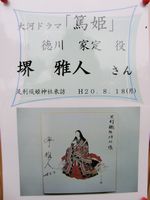 大河ドラマ「篤姫」
徳川 家定 役
堺 雅人 さん
足利織姫神社来訪 H20.8.18(月)
足利織姫神社